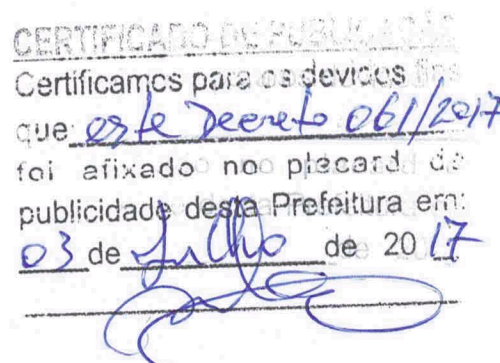 CERTIFICADO DE PUBLICAÇÃO
Certificamos para os devidos fins
que este Decreto 061/2017
foi afixado no placard de
publicidade desta Prefeitura em:
03 de Julho de 2017